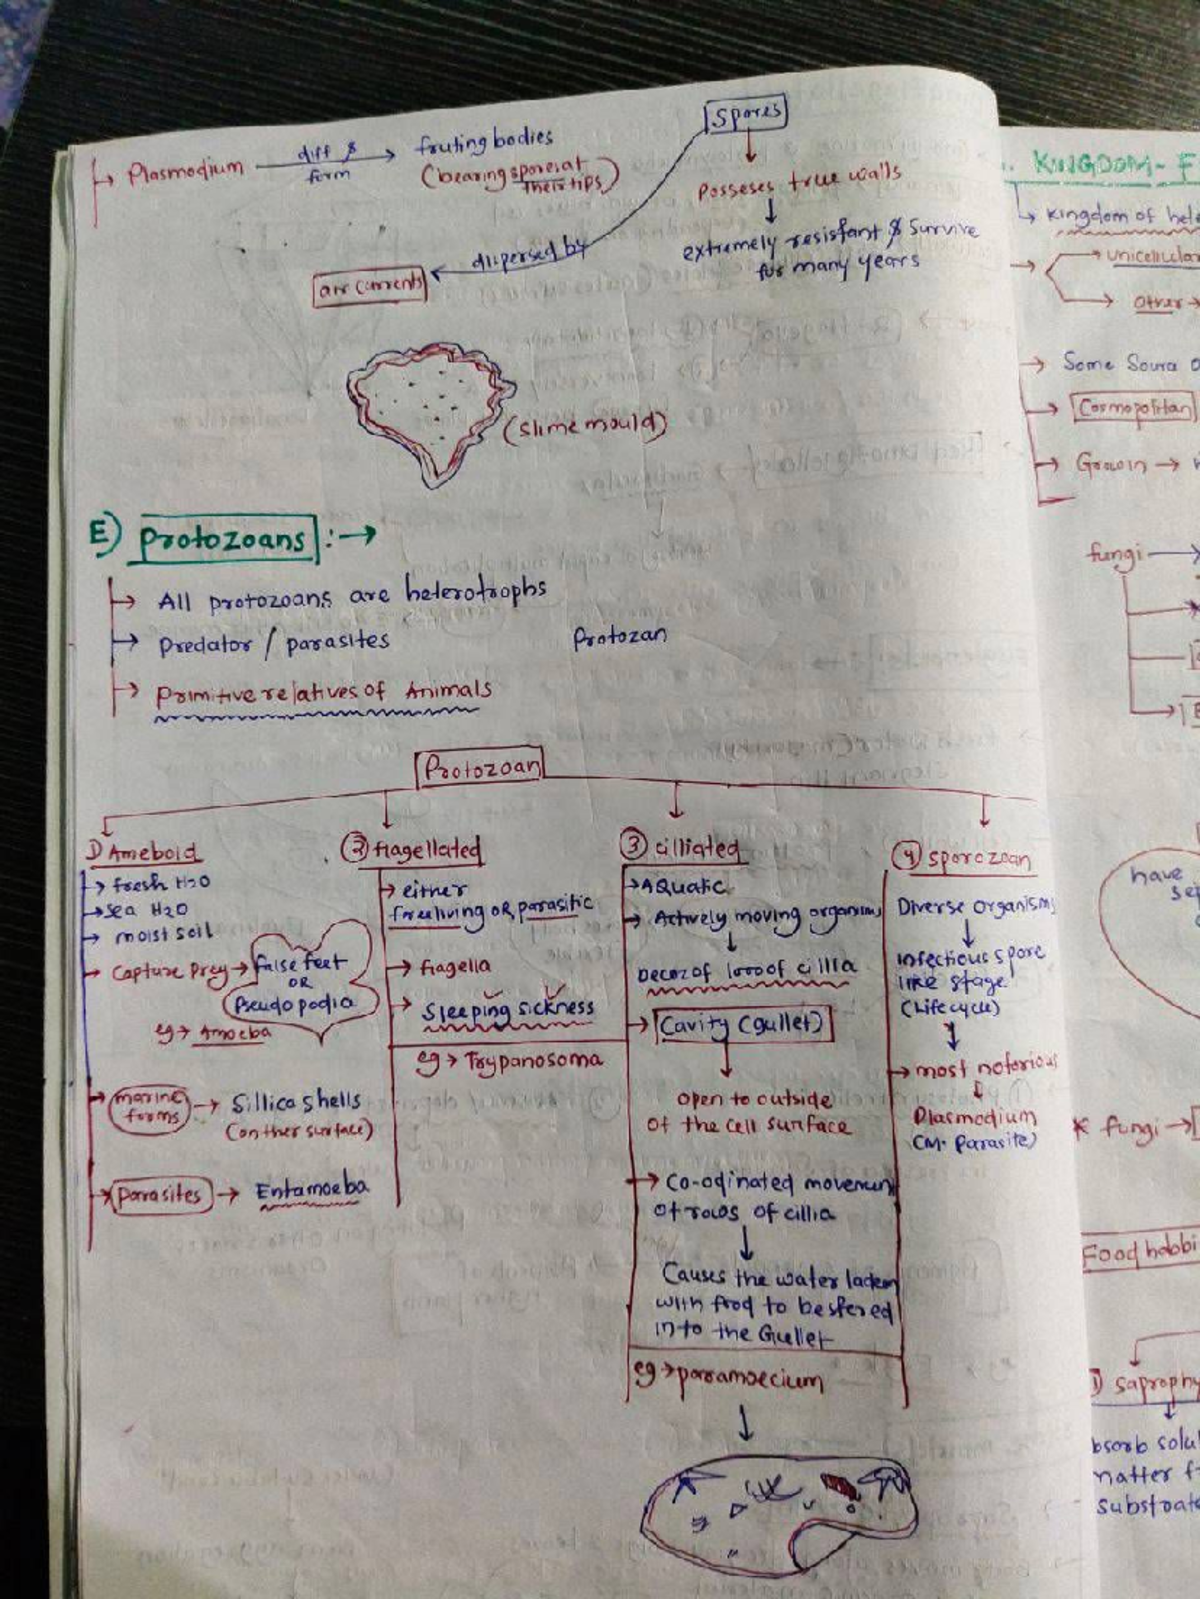 Spores
Plasmodium diff & form fruting bodies
(bearing spores at their tips)
Posseses true walls
extremely resistant & Survive
for many years
dispersed by
air currents
(slime mould)
E) Protozoans :→
All protozoans are heterotrophs
Predator / parasites
Protozan
Primitive relatives of Animals
Protozoan
1) Ameboid
→ fresh H2O
→ sea H2O
→ moist soil
→ Capture Prey → false feet
OR
Pseudopodia
eg → Amoeba
→ marine forms → Sillica shells
(on ther surface)
→ Parasites → Entamoeba
② flagellated
→ either
freeliving OR parasitic
→ flagella
→ Sleeping sickness
eg → Trypanosoma
③ cilliated
→ AQuatic
→ Actively moving organisms
becoz of 1000 of cillia
→ Cavity (gullet)
open to outside
of the cell surface
→ Co-odinated movement
of rows of cillia
Causes the water laden
with food to be
into the Gullet
eg → paramoecium
④ sporozoan
Diverse organisms
infectious spore
like stage
(Lifecycle)
→ most notorious
Plasmodium
(M. Parasite)
KINGDOM - F
Kingdom of hete
unicellular
Other →
Some
Cosmopolitan
Grow in →
fungi
have
sep
* fungi →
Food habbi
1) Saprophy
bsorb solu
matter f
substrate